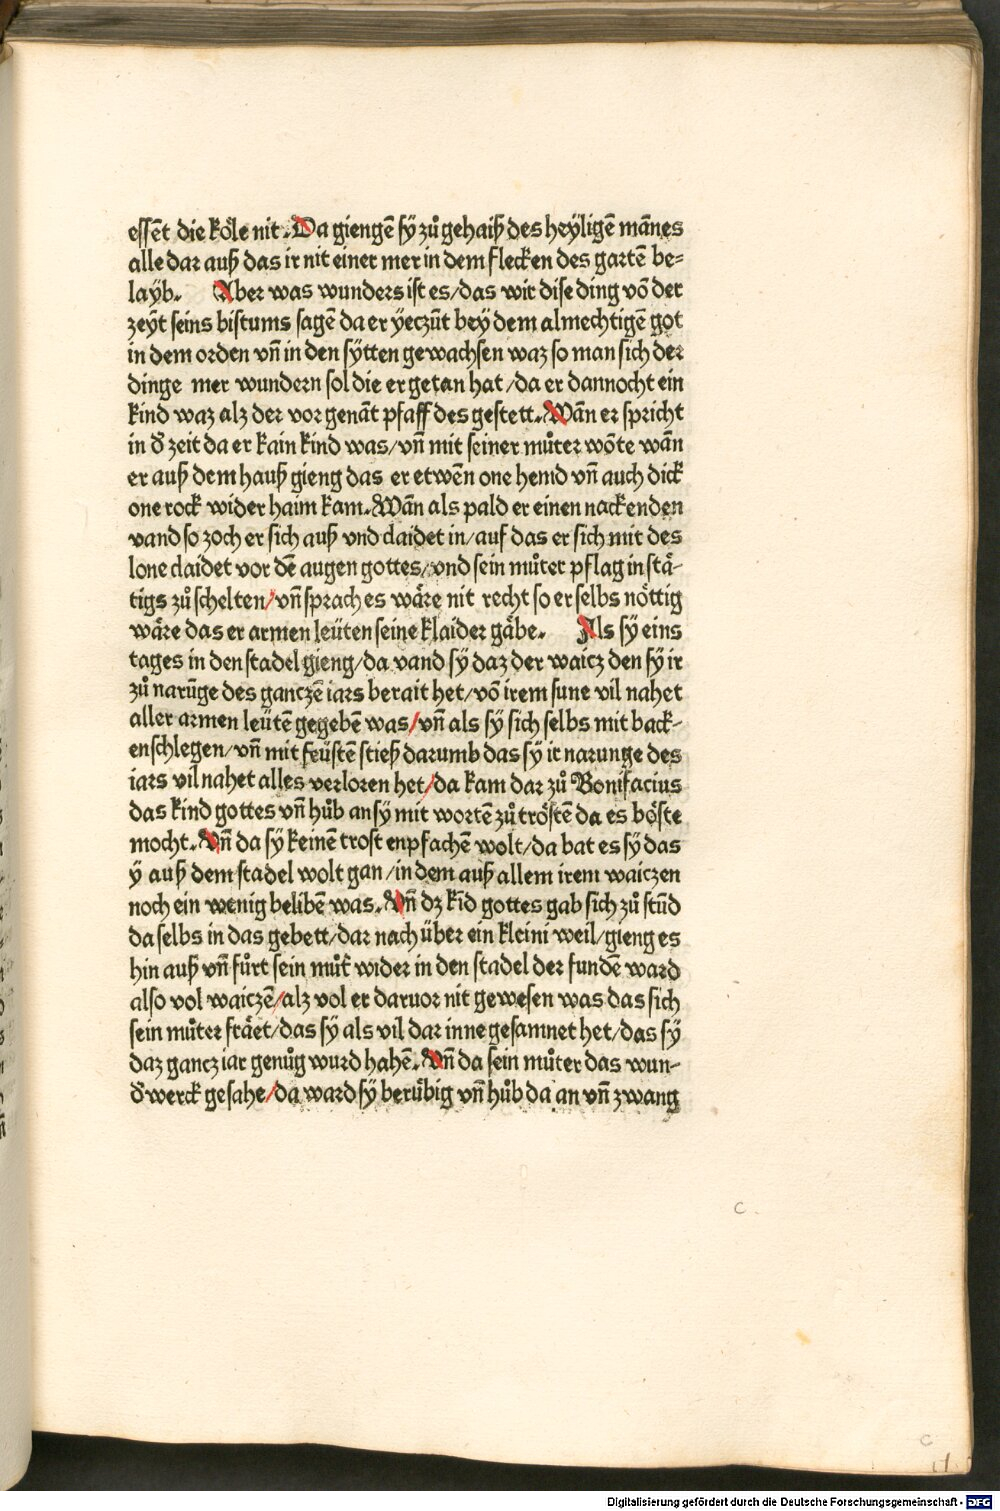 essēt die köle nit. Da giengē sy zů gehaiß des heyligē mānes
alle dar auß das ir nit einer mer in dem flecken des gartē be=
layb. Aber was wunders ist es/das wir dise ding vō der
zeyt seins bistums sagē da er yeczūt bey dem almechtigē got
in dem orden vn̄ in den sytten gewachsen waz so man sich der
dinge mer wundern sol die er getan hat/da er dannocht ein
kind waz alz der vor genāt pfaff des gestett. Wān er spricht
in d̓ zeit da er kain kind was/vn̄ mit seiner můter wōte wān
er auß dem hauß gieng das er etwēn one hemd vn̄ auch dick
one rock wider haim kam. Wān als pald er einen nackenden
vand so zoch er sich auß vnd claidet in/auf das er sich mit des
lone claidet vor dē augen gottes/vnd sein můter pflag in stä-
tigs zů schelten/vn̄ sprach es wäre nit recht so er selbs nöttig
wäre das er armen leüten seine klaider gäbe. Als sy eins
tages in den stadel gieng/da vand sy daz der waicz den sy ir
zů narūge des ganczē iars berait het/vō irem sune vil nahet
aller armen leütē gegebē was/vn̄ als sy sich selbs mit back-
enschlegen/vn̄ mit feüstē stieß darumb das sy ir narunge des
iars vil nahet alles verloren het/da kam dar zů Bonifacius
das kind gottes vn̄ hůb an sy mit wortē zů tröstē da es böste
mocht. Vn̄ da sy keinē trost enpfachē wolt/da bat es sy das
y auß dem stadel wolt gan/in dem auß allem irem waiczen
noch ein wenig belibē was. Vn̄ dz kīd gottes gab sich zů stūd
da selbs in das gebett/dar nach über ein kleini weil/gieng es
hin auß vn̄ fůrt sein můt̓ wider in den stadel der fundē ward
also vol waiczē/alz vol er daruor nit gewesen was das sich
sein můter fräet/das sy als vil dar inne gesamnet het/das sy
daz gancz iar genůg wurd hahē. Vn̄ da sein můter das wun-
d̓ werck gesahe/da ward sy berübig vn̄ hůb da an vn̄ zwang
c
c
Digitalisierung gefördert durch die Deutsche Forschungsgemeinschaft - DFG